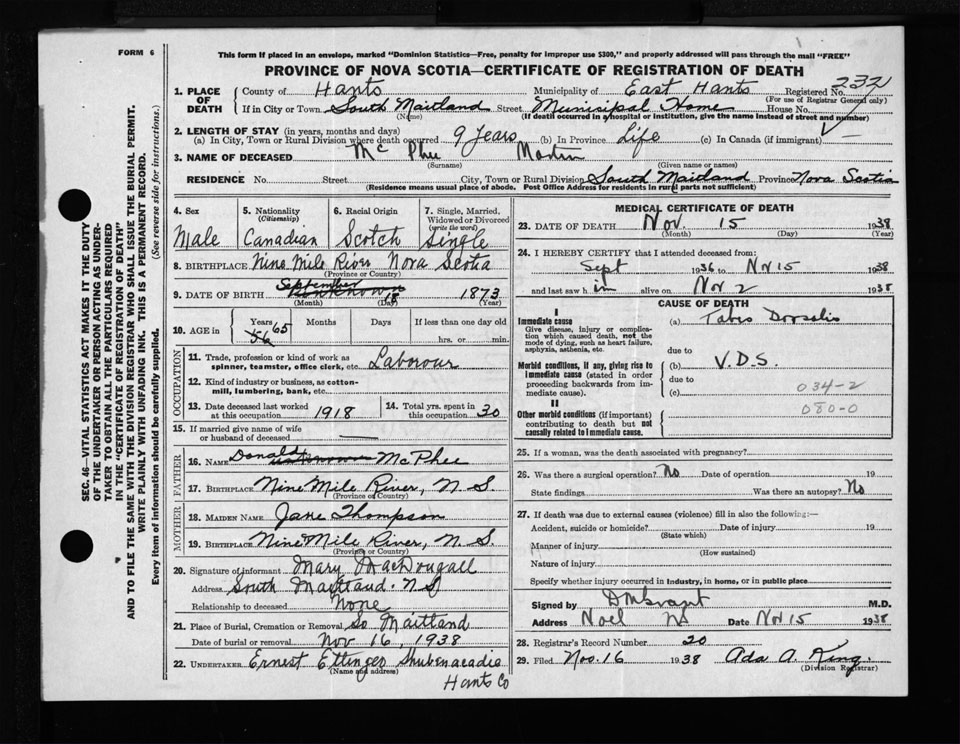 FORM 6
This form if placed in an envelope, marked "Dominion Statistics—Free, penalty for improper use $300," and properly addressed will pass through the mail "FREE"
PROVINCE OF NOVA SCOTIA—CERTIFICATE OF REGISTRATION OF DEATH
SEC. 46—VITAL STATISTICS ACT MAKES IT THE DUTY
OF THE UNDERTAKER OR PERSON ACTING AS UNDER-
TAKER TO OBTAIN ALL THE PARTICULARS REQUIRED
IN THE "CERTIFICATE OF REGISTRATION OF DEATH"
AND TO FILE THE SAME WITH THE DIVISION REGISTRAR WHO SHALL ISSUE THE BURIAL PERMIT.
WRITE PLAINLY WITH UNFADING INK. THIS IS A PERMANENT RECORD.
Every item of information should be carefully supplied. (See reverse side for instructions.)
1. PLACE OF DEATH County of Hants Municipality of East Hants Registered No. 2321
(For use of Registrar General only)
If in City or Town South Maitland Street Municipal Home House No.
(Name) (If death occurred in a hospital or institution, give the name instead of street and number)
2. LENGTH OF STAY (in years, months and days)
(a) In City, Town or Rural Division where death occurred 9 Years (b) In Province Life (c) In Canada (if immigrant) —
3. NAME OF DECEASED McPhee Martin
(Surname) (Given name or names)
RESIDENCE No. Street City, Town or Rural Division South Maitland Province Nova Scotia
(Residence means usual place of abode. Post Office Address for residents in rural parts not sufficient)
4. Sex Male
5. Nationality (Citizenship) Canadian
6. Racial Origin Scotch
7. Single, Married, Widowed or Divorced (write the word) Single
8. BIRTHPLACE Nine Mile River Nova Scotia
(Province or Country)
9. DATE OF BIRTH September Unknown 18 1873
(Month) (Day) (Year)
10. AGE in Years 56 65 Months Days If less than one day old hrs. or min.
OCCUPATION
11. Trade, profession or kind of work as spinner, teamster, office clerk, etc. Laborour
12. Kind of industry or business, as cotton-mill, lumbering, bank, etc.
13. Date deceased last worked at this occupation 1918
14. Total yrs. spent in this occupation 30
15. If married give name of wife or husband of deceased —
FATHER
16. NAME Donald Unknown McPhee
17. BIRTHPLACE Nine Mile River, N. S.
(Province or Country)
MOTHER
18. MAIDEN NAME Jane Thompson
19. BIRTHPLACE Nine Mile River, N. S.
(Province or Country)
20. Signature of informant Mary MacDougall
Address South Maitland. NS
Relationship to deceased None
21. Place of Burial, Cremation or Removal So Maitland
Date of burial or removal Nov 16, 1938
22. UNDERTAKER Ernest Ettinger Shubenacadie
(Name and address)
Hants Co
MEDICAL CERTIFICATE OF DEATH
23. DATE OF DEATH Nov. 15 1938
(Month) (Day) (Year)
24. I HEREBY CERTIFY that I attended deceased from:
Sept 1936 to Nov 15 1938
and last saw him alive on Nov 2 1938
CAUSE OF DEATH
I
Immediate cause
Give disease, injury or complication which caused death, not the mode of dying, such as heart failure, asphyxia, asthenia, etc.
(a) Tabes Dorsalis
due to
Morbid conditions, if any, giving rise to immediate cause (stated in order proceeding backwards from immediate cause).
(b) V.D.S.
due to
(c) 034-2
080-0
II
Other morbid conditions (if important) contributing to death but not causally related to immediate cause.
25. If a woman, was the death associated with pregnancy?
26. Was there a surgical operation? No Date of operation 19
State findings Was there an autopsy? No
27. If death was due to external causes (violence) fill in also the following:—
Accident, suicide or homicide? Date of injury 19
(State which)
Manner of injury
(How sustained)
Nature of injury
Specify whether injury occurred in industry, in home, or in public place
Signed by M.D.
Address Noel NS Date Nov 15 1938
28. Registrar's Record Number 20
29. Filed Nov. 16 1938 Ada A. King.
(Division Registrar)